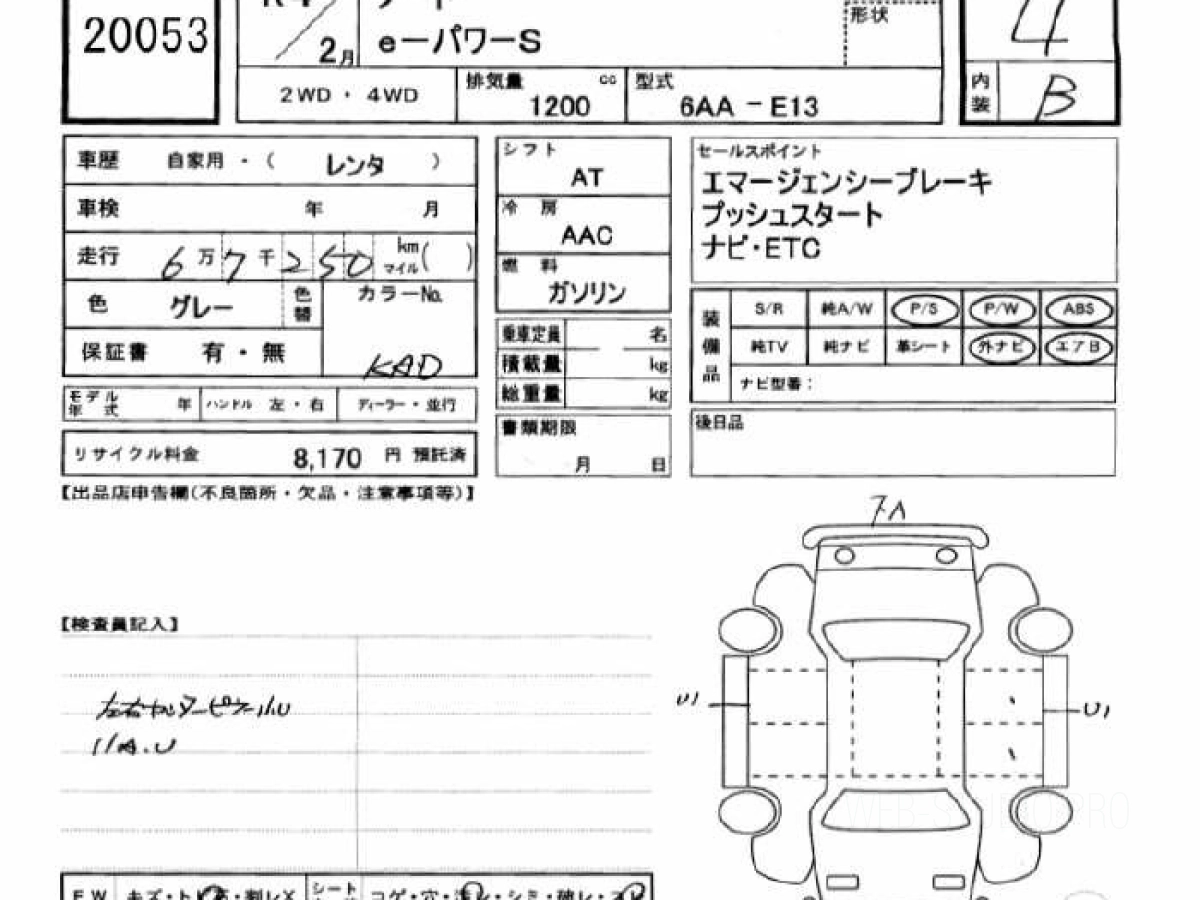 20053
2月
e－パワーS
形状
4
2WD ・ 4WD
排気量 cc 1200
型式 6AA － E13
内装 B
車歴 自家用 ・ （ レンタ ）
車検 年 月
走行 6万7千250 km マイル（ ）
色 グレー 色替
カラーNo. KAD
保証書 有 ・ 無
モデル年式 年 ハンドル 左 ・ 右 ディーラー ・ 並行
リサイクル料金 8,170 円 預託済
シフト
AT
冷房
AAC
燃料
ガソリン
乗車定員 名
積載量 kg
総重量 kg
書類期限
月 日
セールスポイント
エマージェンシーブレーキ
プッシュスタート
ナビ・ETC
装備品
S/R 純A/W P/S P/W ABS
純TV 純ナビ 革シート 外ナビ エアB
ナビ型番：
後日品
【出品店申告欄（不良箇所・欠品・注意事項等）】
【検査員記入】
U1
U1
WEB-
PRO